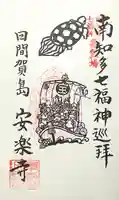 南知多七福神巡拝
日間賀島
安楽寺